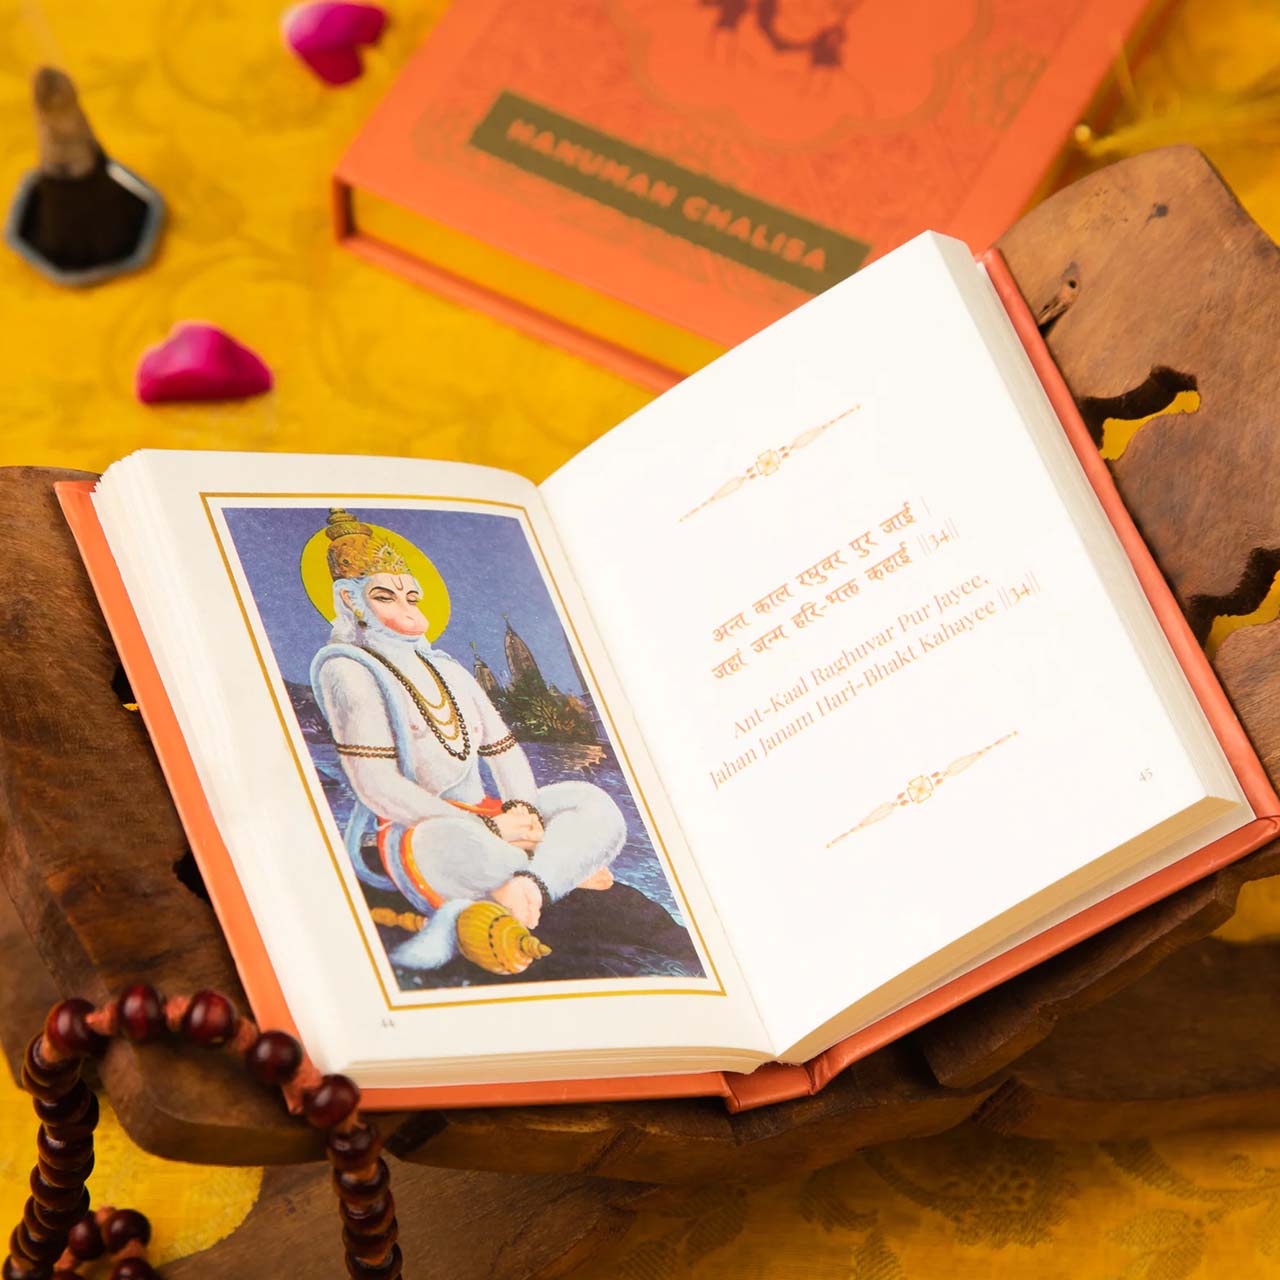 HANUMAN CHALISA
अन्त काल रघुवर पुर जाई |
जहां जन्म हरि-भक्त कहाई ||34||
Ant-Kaal Raghuvar Pur Jayee,
Jahan Janam Hari-Bhakt Kahayee ||34||
44
45